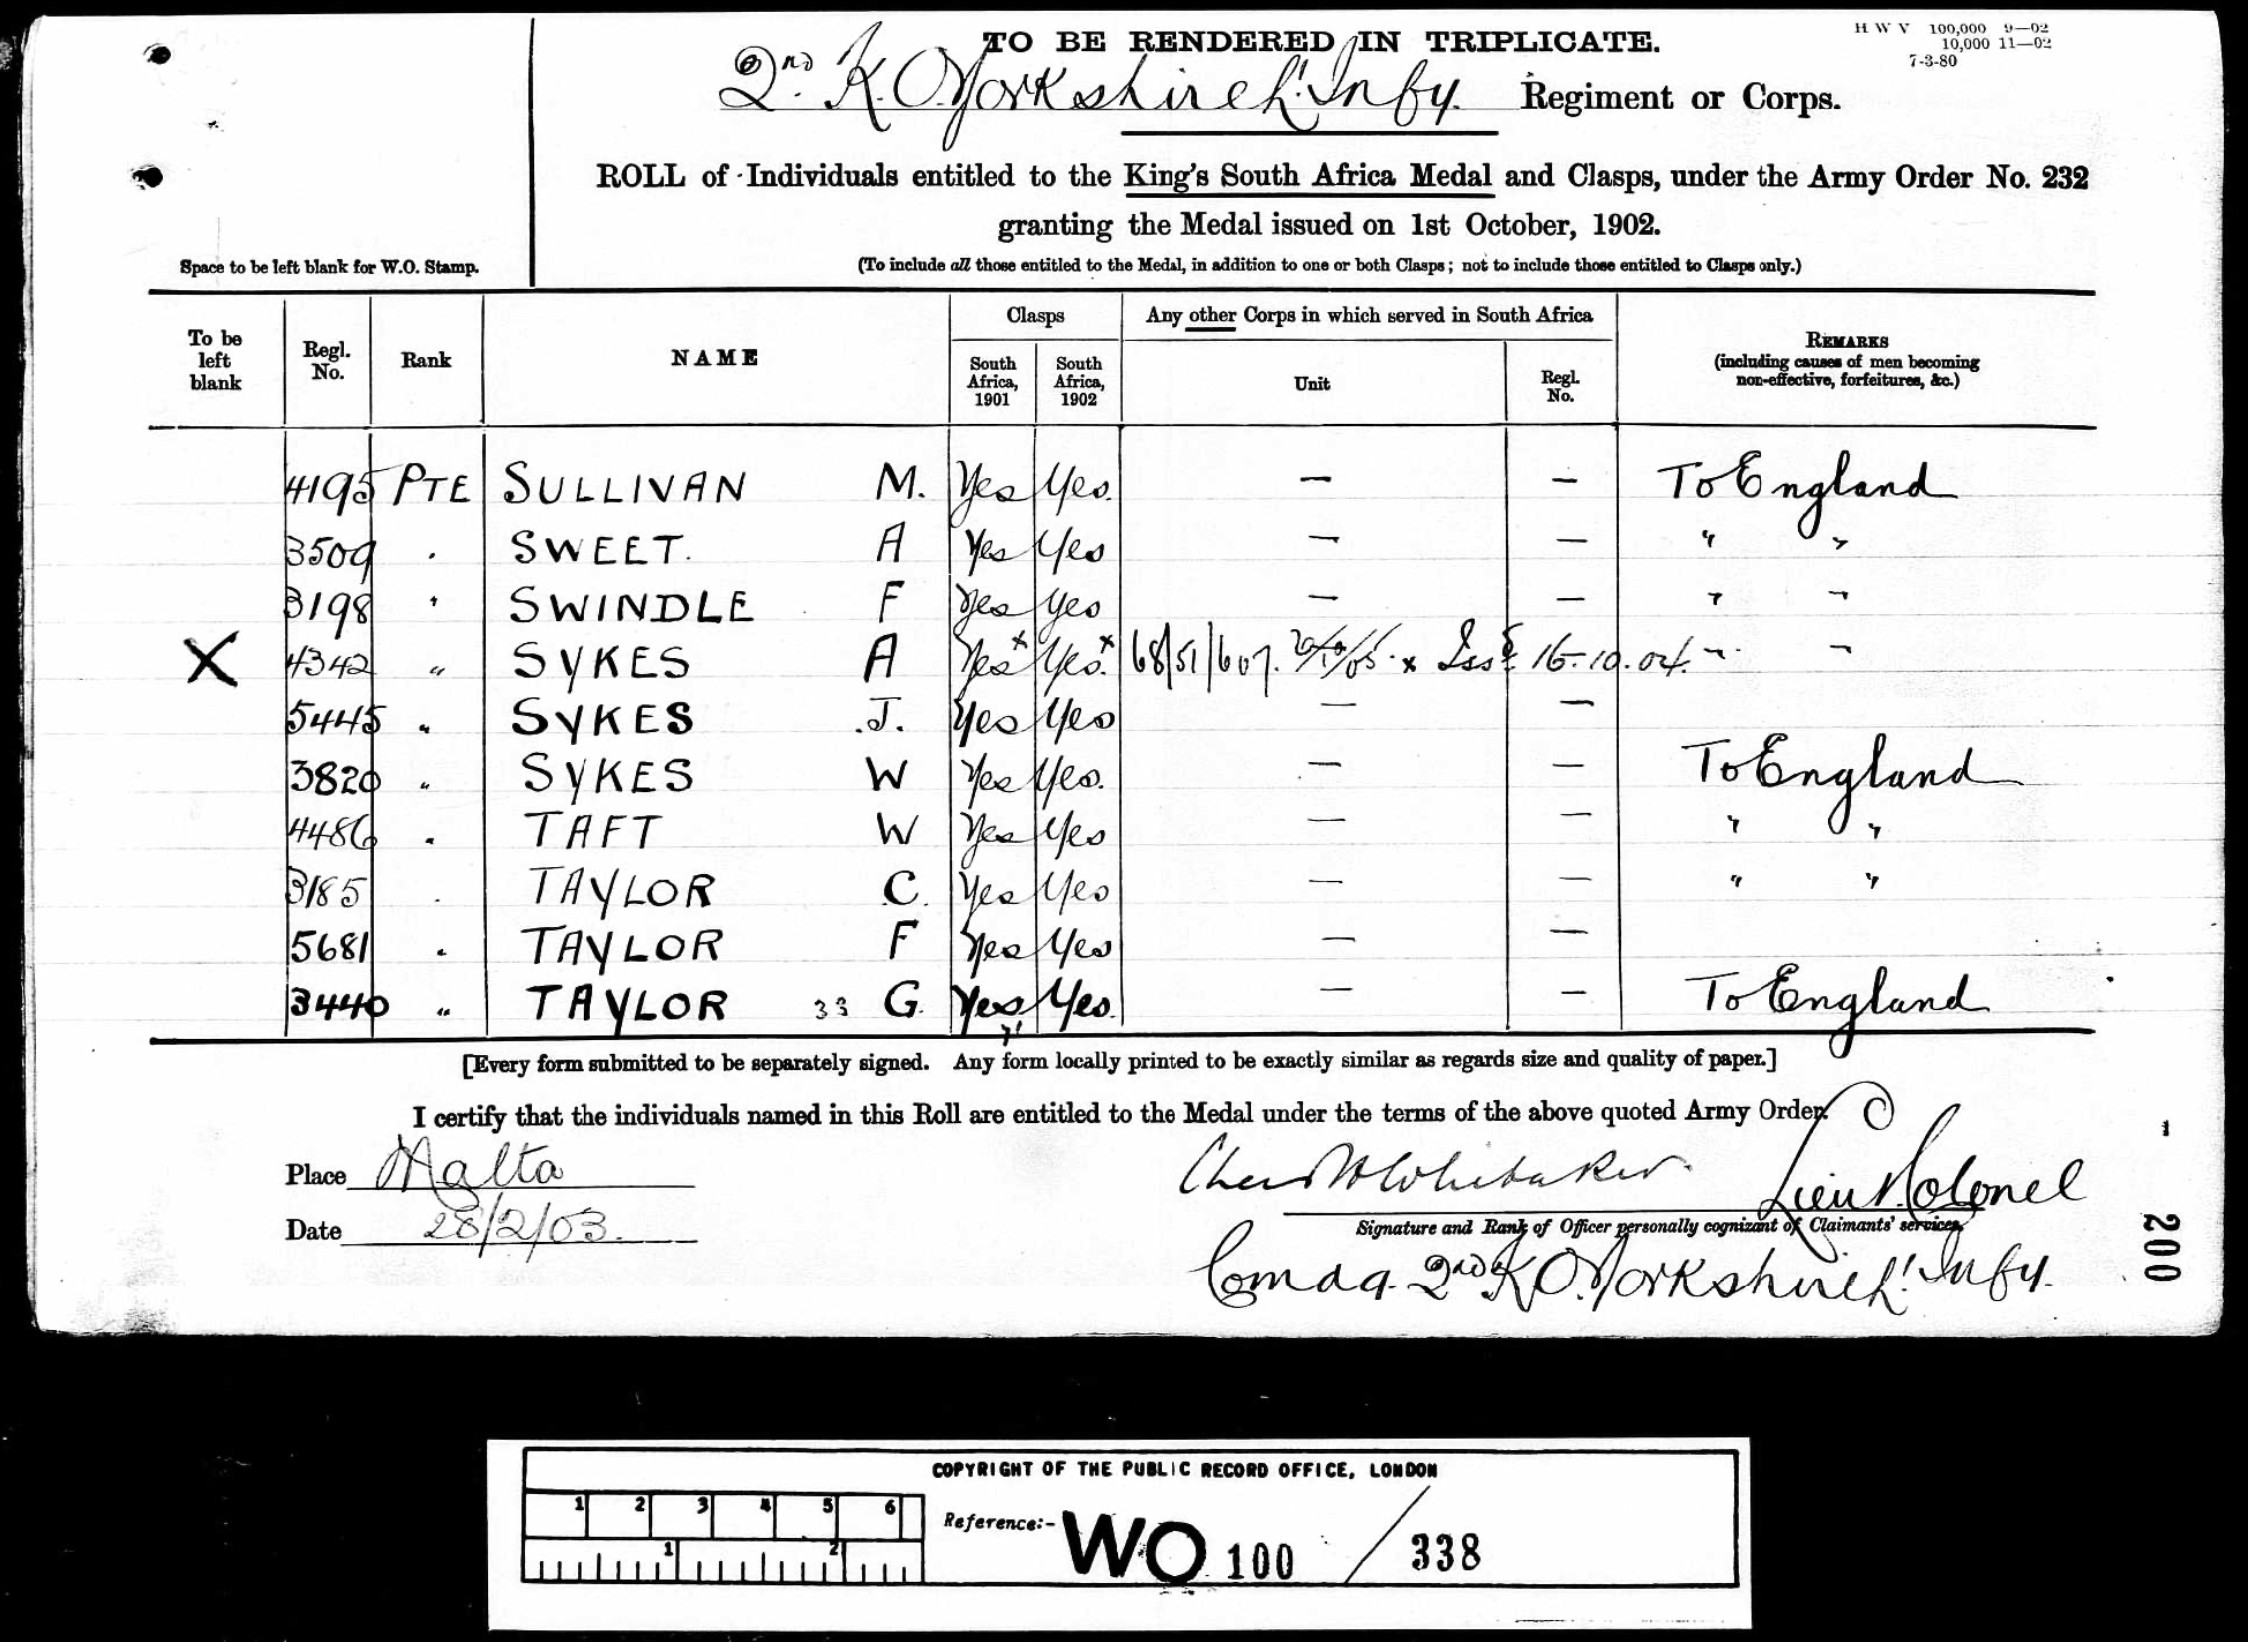 TO BE RENDERED IN TRIPLICATE.
H W V 100,000 9—02
10,000 11—02
7-3-80
2nd. K. O. Yorkshire L! Infy. Regiment or Corps.
ROLL of Individuals entitled to the King's South Africa Medal and Clasps, under the Army Order No. 232
granting the Medal issued on 1st October, 1902.
Space to be left blank for W.O. Stamp.
(To include all those entitled to the Medal, in addition to one or both Clasps; not to include those entitled to Clasps only.)
To be left blank Regl. No. Rank NAME Clasps South Africa, 1901 South Africa, 1902 Any other Corps in which served in South Africa Unit Regl. No. REMARKS (including causes of men becoming non-effective, forfeitures, &c.)
4195 PTE SULLIVAN M. Yes Yes. — — To England
3509 . SWEET. A Yes Yes — — " "
3198 " SWINDLE F Yes Yes — — " "
X 4342 " SYKES A Yes x Yes. x 68/51/607. x Issd 16.10.04. " "
5445 " SYKES J. Yes Yes — —
3820 " SYKES W Yes Yes. — — To England
4486 " TAFT W Yes Yes — — " "
3185 . TAYLOR C. Yes Yes — — " "
5681 " TAYLOR F Yes Yes — —
3440 " TAYLOR 33 G. Yes Yes. — — To England
[Every form submitted to be separately signed. Any form locally printed to be exactly similar as regards size and quality of paper.]
I certify that the individuals named in this Roll are entitled to the Medal under the terms of the above quoted Army Order.
Place Malta
Whitaker Lieut. Colonel
Signature and Rank of Officer personally cognizant of Claimants' services
Date 28/2/03.
Comdg. 2nd K. O. Yorkshire L! Infy.
200
COPYRIGHT OF THE PUBLIC RECORD OFFICE, LONDON
1 2 3 4 5 6
Reference:- WO 100 / 338
1 2